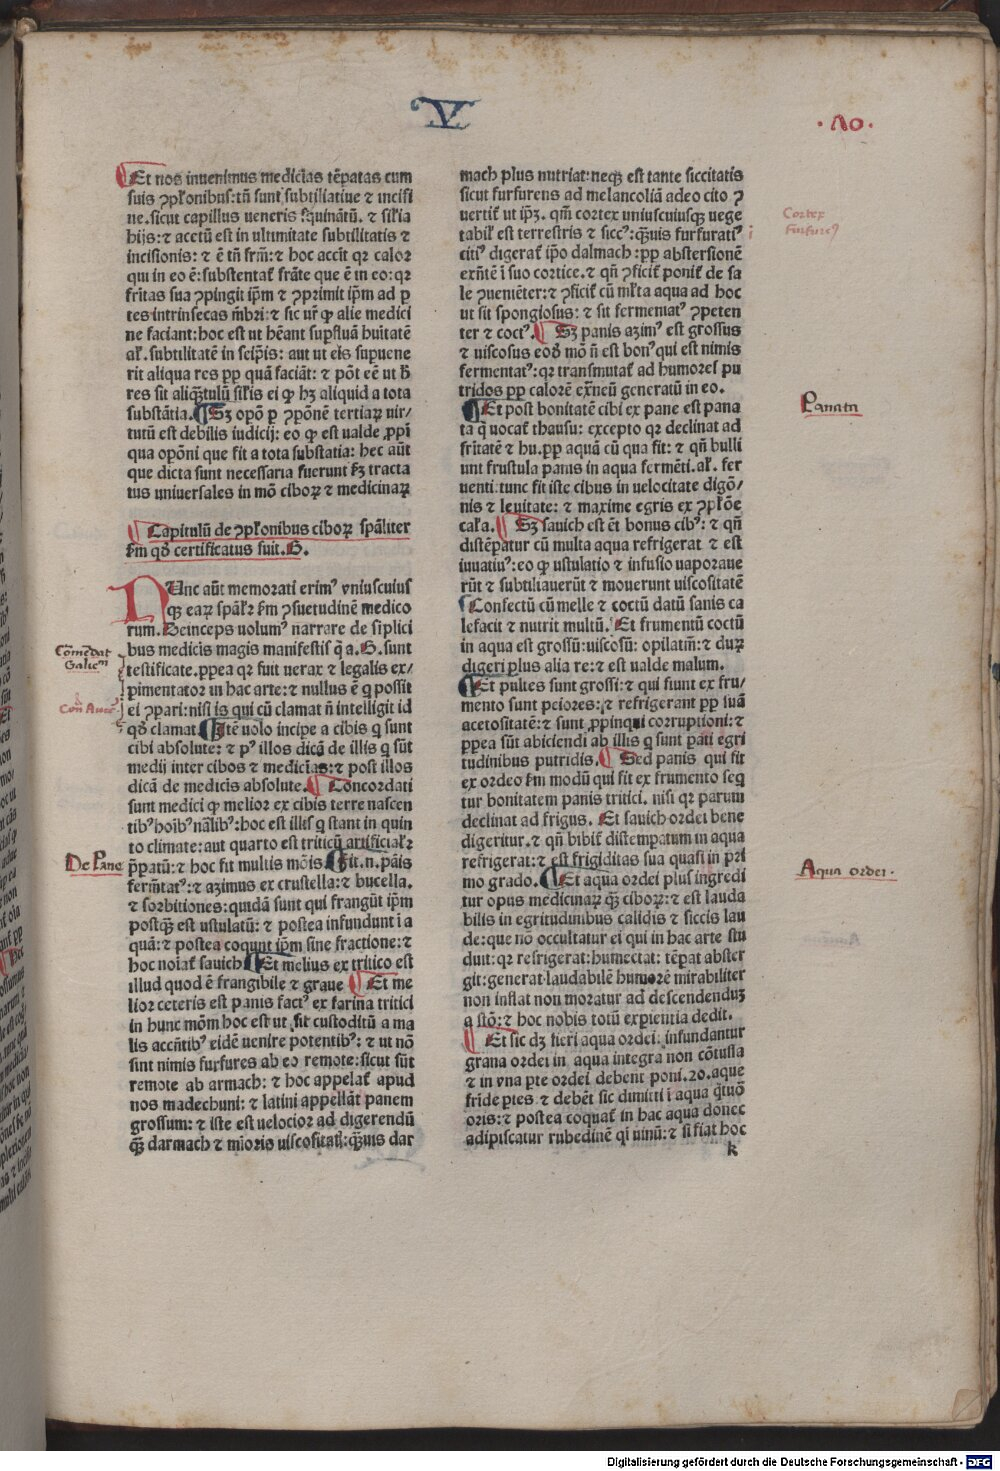 V
· 40 ·
Et nos inuenimus medicĩas tẽpatas cum
suis ꝯplonibus: tñ sunt subtiliatiue ⁊ incisi
ue. sicut capillus ueneris squinãtũ. ⁊ silia
hijs: ⁊ acetũ est in ultimitate subtilitatis ⁊
incisionis: ⁊ ẽ tñ frm̃: ⁊ hoc accit qr calor
qui in eo ẽ: substentat frãte que ẽ in eo: qr
fritas sua ꝯpingit ip̃m ⁊ ꝯprimit ip̃m ad p
tes intrinsecas mb̃ri: ⁊ sic ur̃ ꝙ alie medici
ne faciant: hoc est ut hẽant supfluã huĩtatẽ
al. subtilitatẽ in seip̃is: aut ut eis supuene
rit aliqua res pp quã faciãt: ⁊ põt eẽ ut h̃
res sit aliq̃tulũ silis ei ꝙ hꝫ aliquid a tota
substãtia. Sꝫ opõ p ꝯpõnẽ tertiaꝝ uir/
tutũ est debilis iudicij: eo ꝙ est ualde ꝓpĩ
qua opõni que fit a tota substatia: hec aũt
que dicta sunt necessaria fuerunt ẜꝫ tracta
tus uniuersales in mõ ciboꝝ ⁊ medicinaꝝ
Capitulũ de ꝯplonibus ciboꝝ spãliter
ẜm qđ certificatus fuit. G.
NUnc aũt memorati erimꝰ vniuscuius
qꝫ eaꝝ spãlr ẜm ꝯsuetudinẽ medico
rum. Deinceps uolumꝰ narrare de siplici
bus medicis magis manifestis q̃ a. G. sunt
testificate. ꝓpea qr fuit uerax ⁊ legalis ex/
pimentator in hac arte: ⁊ nullus ẽ q possit
ei ꝯpari: nisi is qui cũ clamat ñ intelligit id
qđ clamat Itẽ uolo incipe a cibis q sunt
cibi absolute: ⁊ pꝰ illos dicã de illis q sũt
medij inter cibos ⁊ medicĩas: ⁊ post illos
dicã de medicis absolute. Concordati
sunt medici ꝙ melior ex cibis terre nascen
tibꝰ hoĩbꝰ nãlibꝰ: hoc est illis q stant in quin
to climate: aut quarto est triticũ artificialr
p̃patũ: ⁊ hoc fit multis mõis. Fit. n. pãis
fermẽtatꝰ: ⁊ azimus ex crustella: ⁊ bucella.
⁊ sorbitiones: quidã sunt qui frangũt ip̃m
postq̃ est ustulatũ: ⁊ postea infundunt ĩ a
quã: ⁊ postea coqunt ip̃m sine fractione: ⁊
hoc noĩat sauich Et melius ex tritico est
illud quod ẽ frangibile ⁊ graue Et me
lior ceteris est panis factꝰ ex farina tritici
in hunc mõm hoc est ut sit custoditũ a ma
lis accñtibꝰ eidẽ uenire potentibꝰ: ⁊ ut nõ
sint nimis furfures ab eo remote: sicut sũt
remote ab armach: ⁊ hoc appelat apud
nos madechuni: ⁊ latini appellãt panem
grossum: ⁊ iste est uelocior ad digerendũ
q̃ darmach ⁊ mĩoris uiscositatĩ: q̃uis dar
mach plus nutriat: neqꝫ est tante siccitatis
sicut furfurens ad melancoliã adeo cito ꝯ
uertit ut ip̃ꝫ. qm̃ cortex uniuscuiusqꝫ uege
tabil est terrestris ⁊ siccꝰ: q̃uis furfuratiꝰ
citiꝰ digerat ip̃o dalmach: pp abstersionẽ
exñtẽ ĩ suo cortice. ⁊ qñ ꝯficit ponit de sa
le ꝯueniẽter: ⁊ ꝯficit cũ mlta aqua ad hoc
ut sit spongiosus: ⁊ sit fermentatꝰ ꝯpeten
ter ⁊ coctꝰ. Sꝫ panis azimꝰ est grossus
⁊ uiscosus eođ mõ ñ est bonꝰ qui est nimis
fermentatꝰ: qr transmutat ad humores pu
tridos pp calorẽ exñeũ generatũ in eo.
Et post bonitatẽ cibi ex pane est pana
ta q̃ uocat thausu: excepto qr declinat ad
fritatẽ ⁊ hu. pp aquã cũ qua fit: ⁊ qñ bulli
unt frustula panis in aqua fermẽti. al. fer
uenti: tunc fit iste cibus in uelocitate digõ/
nis ⁊ leuitate: ⁊ maxime egris ex ꝯplõe
calA. Sꝫ sauich est ẽt bonus cibꝰ: ⁊ qñ
distẽpatur cũ multa aqua refrigerat ⁊ est
iuuatiuꝰ: eo ꝙ ustulatio ⁊ infusio uaporaue
rũt ⁊ subtiliauerũt ⁊ mouerunt uiscositatẽ
Confectũ cũ melle ⁊ coctũ datũ sanis ca
lefacit ⁊ nutrit multũ. Et frumentũ coctũ
in aqua est grossũ: uiscosũ: opilatiũ: ⁊ duꝝ
digeri plus alia re: ⁊ est ualde malum.
Et pultes sunt grossi: ⁊ qui fiunt ex fru/
mento sunt peiores: ⁊ refrigerant pp suã
acetositatẽ: ⁊ sunt ꝓpinqui corruptioni: ⁊
ꝓpea sũt abiciendi ab illis q sunt pati egri
tudinibus putridis. Sed panis qui fit
ex ordeo ẜm modũ qui fit ex frumento seq̃
tur bonitatem panis tritici. nisi qr parum
declinat ad frigus. Et sauich ordei bene
digeritur. ⁊ qñ bibit distempatum in aqua
refrigerat: ⁊ est frigiditas sua quasi in pri
mo grado. Et aqua ordei plus ingredi
tur opus medicinaꝝ q̃ ciboꝝ: ⁊ est lauda
bilis in egritudinibus calidis ⁊ siccis lau
de: que nõ occultatur ei qui in hac arte stu
duit: qr refrigerat: humectat: tẽpat abster
git: generat laudabilẽ humorẽ mirabiliter
non inflat non moratur ad descendenduꝫ
a stõ: ⁊ hoc nobis totũ expientia dedit.
Et sic dꝫ fieri aqua ordei: infundantur
grana ordei in aqua integra non cõtussa
⁊ in vna pte ordei debent poni. 20. aque
fride ptes. ⁊ debẽt sic dimitti ĩ aqua q̃tuõ
oris: ⁊ postea coquat in hac aqua donec
adipiscatur rubedinẽ qĩ uinũ: ⁊ si fiat hoc
k
Cortex
furfureꝰ
Panata
Comẽdat
Galieᵐ
Con Auẽ
De Pane
Aqua ordei ·
Digitalisierung gefördert durch die Deutsche Forschungsgemeinschaft - DFG